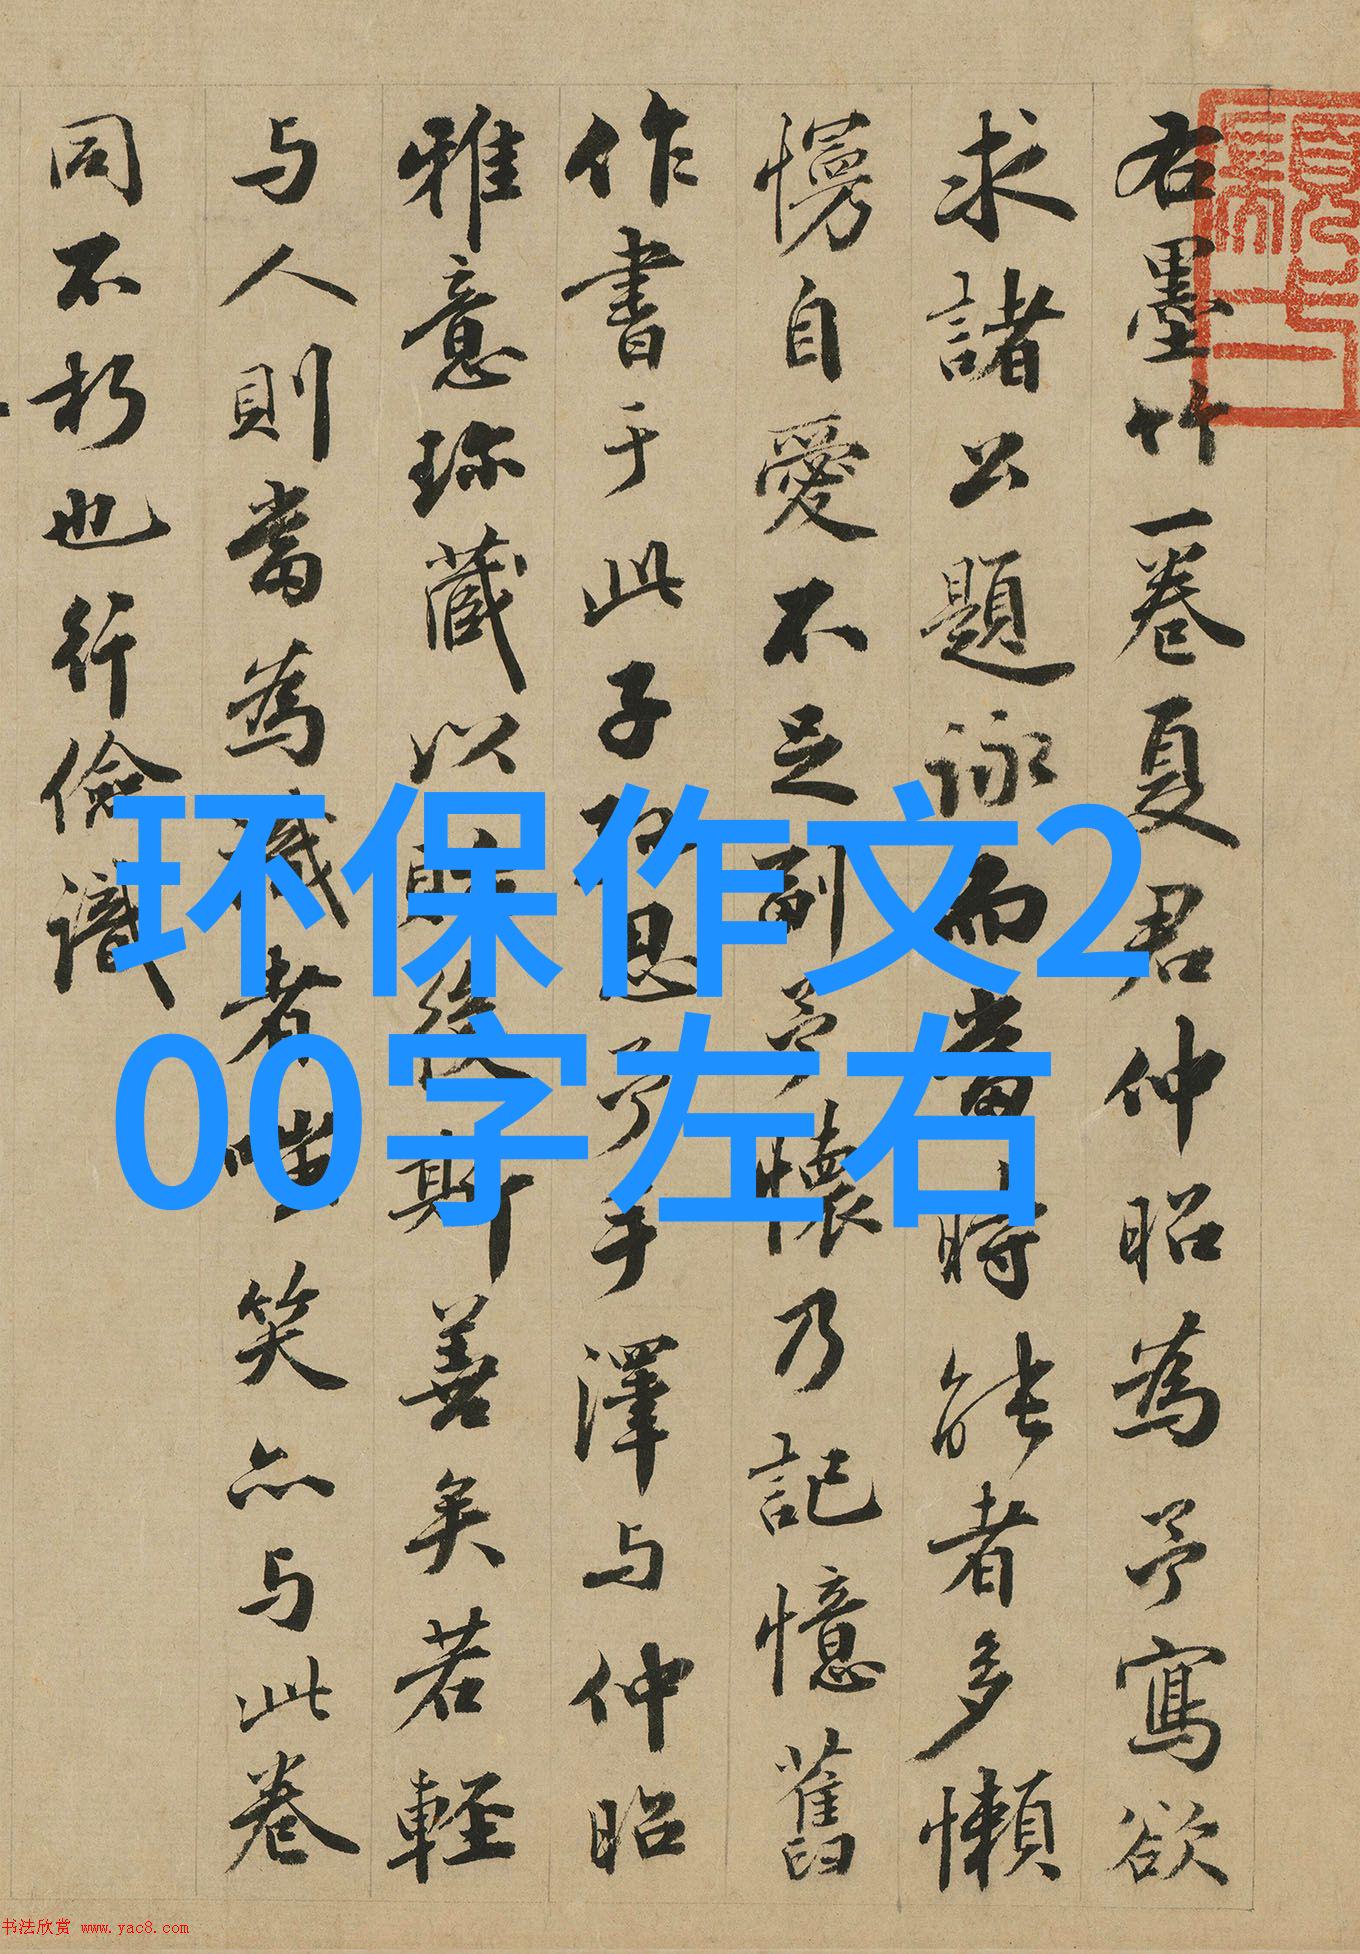 右墨竹一卷夏君仲昭為予寫欲
求諸公題詠而當時能者多懶
慢自愛不足副予懷乃記憶舊
作書于此子孫思予手澤与仲昭
雅意珎藏以貽後斯善矣若輕
与人則當為識者嗤笑亦与此卷
同不朽也行儉識
环保作文2
00字左右
书法欣赏 www.yac8.com